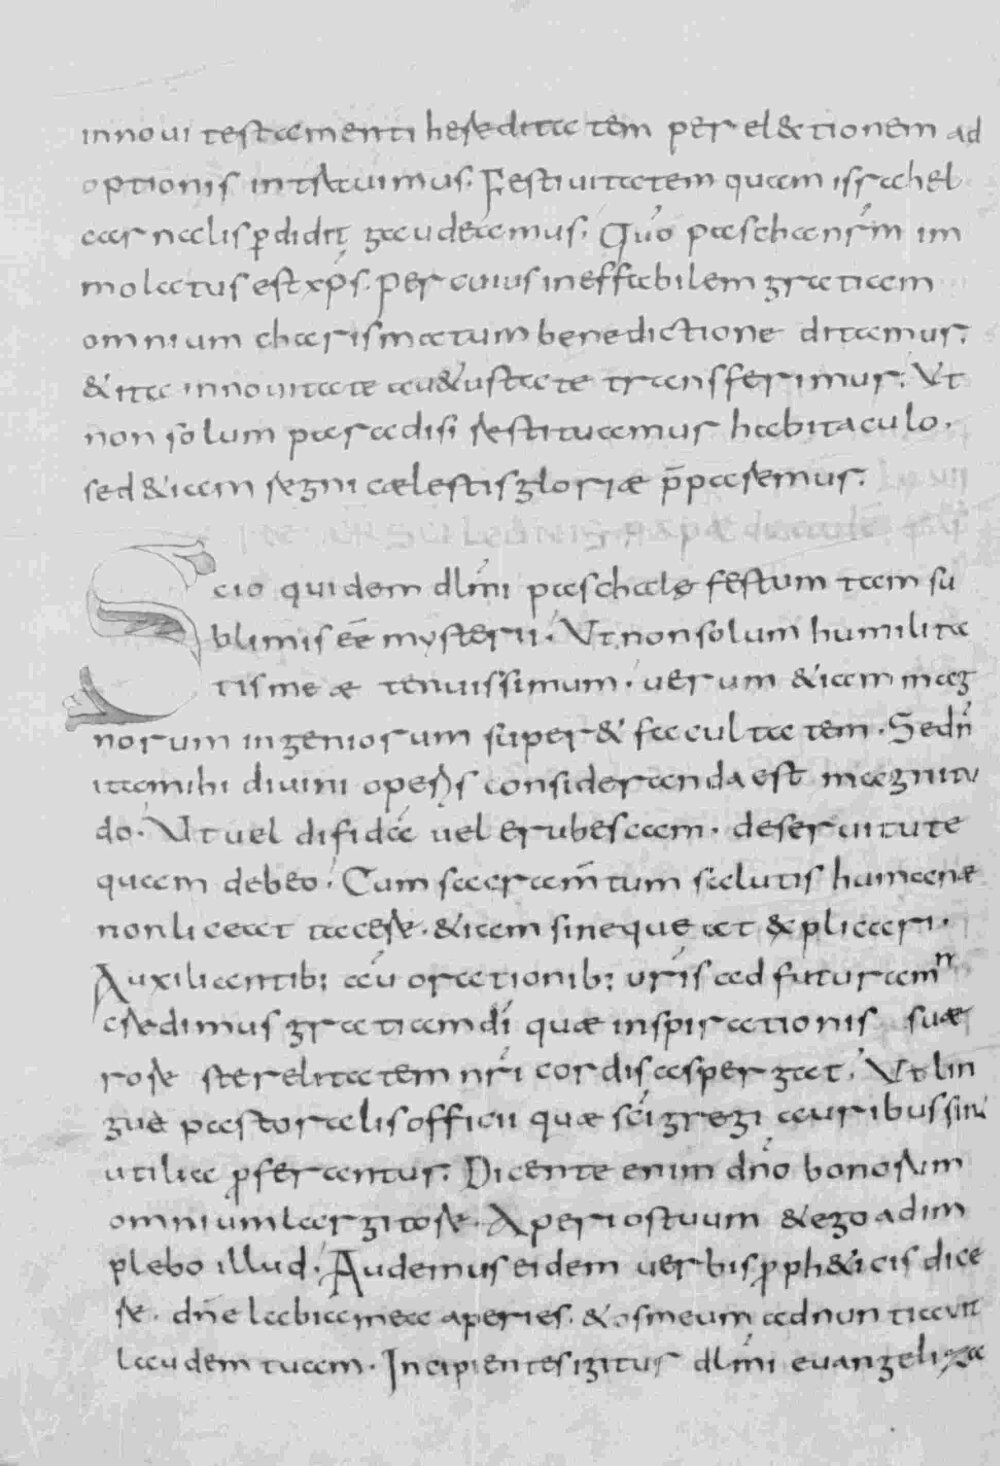 innoui testamenti hereditatem per el&tionem ad
optionis intrauimus. Festiuitatem quam israhel
carnalis ꝑdidit gaudeamus. Quo paschanrm im
molatus est xps. per cuius ineffabilem gratiam
omnium charismatum benedictione ditamur.
& ita innouitate au&ustate transferimur. Ut
non solum paradisi restituamur habitaculo.
sed &iam regni cælestis gloriæ p̄paremur.
Scio quidem dlmi paschale festum tam su
blimis eē mysterii. Ut non solum humilita
tis meæ tenuissimum. uerum &iam mag
norum ingeniorum super& facultatem. Sed n̄
ita mihi diuini operis consideranda est magnitu
do. Ut uel difida uel erubescam. de seruitute
quam debeo. Cum sacram̄tum salutis humanæ
non liceat tacere. &iam sine queat &plicari.
Auxiliantib; au orationib; uris ad futuram n̄
credimus gratiam di quæ inspirationis suæ
rore sterelitatem nri cordis aspergat. Ut lin
gue pastoralis officii quæ sci gregi auribus sint
utilia ꝓferantur. Dicente enim dno bonorum
omnium largitore. Aperi os tuum &ego adim
plebo illud. Audemus eidem uerbis ꝓph&icis dice
re. dne labia mea aperies. &os meum adnuntiauit
laudem tuam. Incipientes igitur dlmi euangeliza